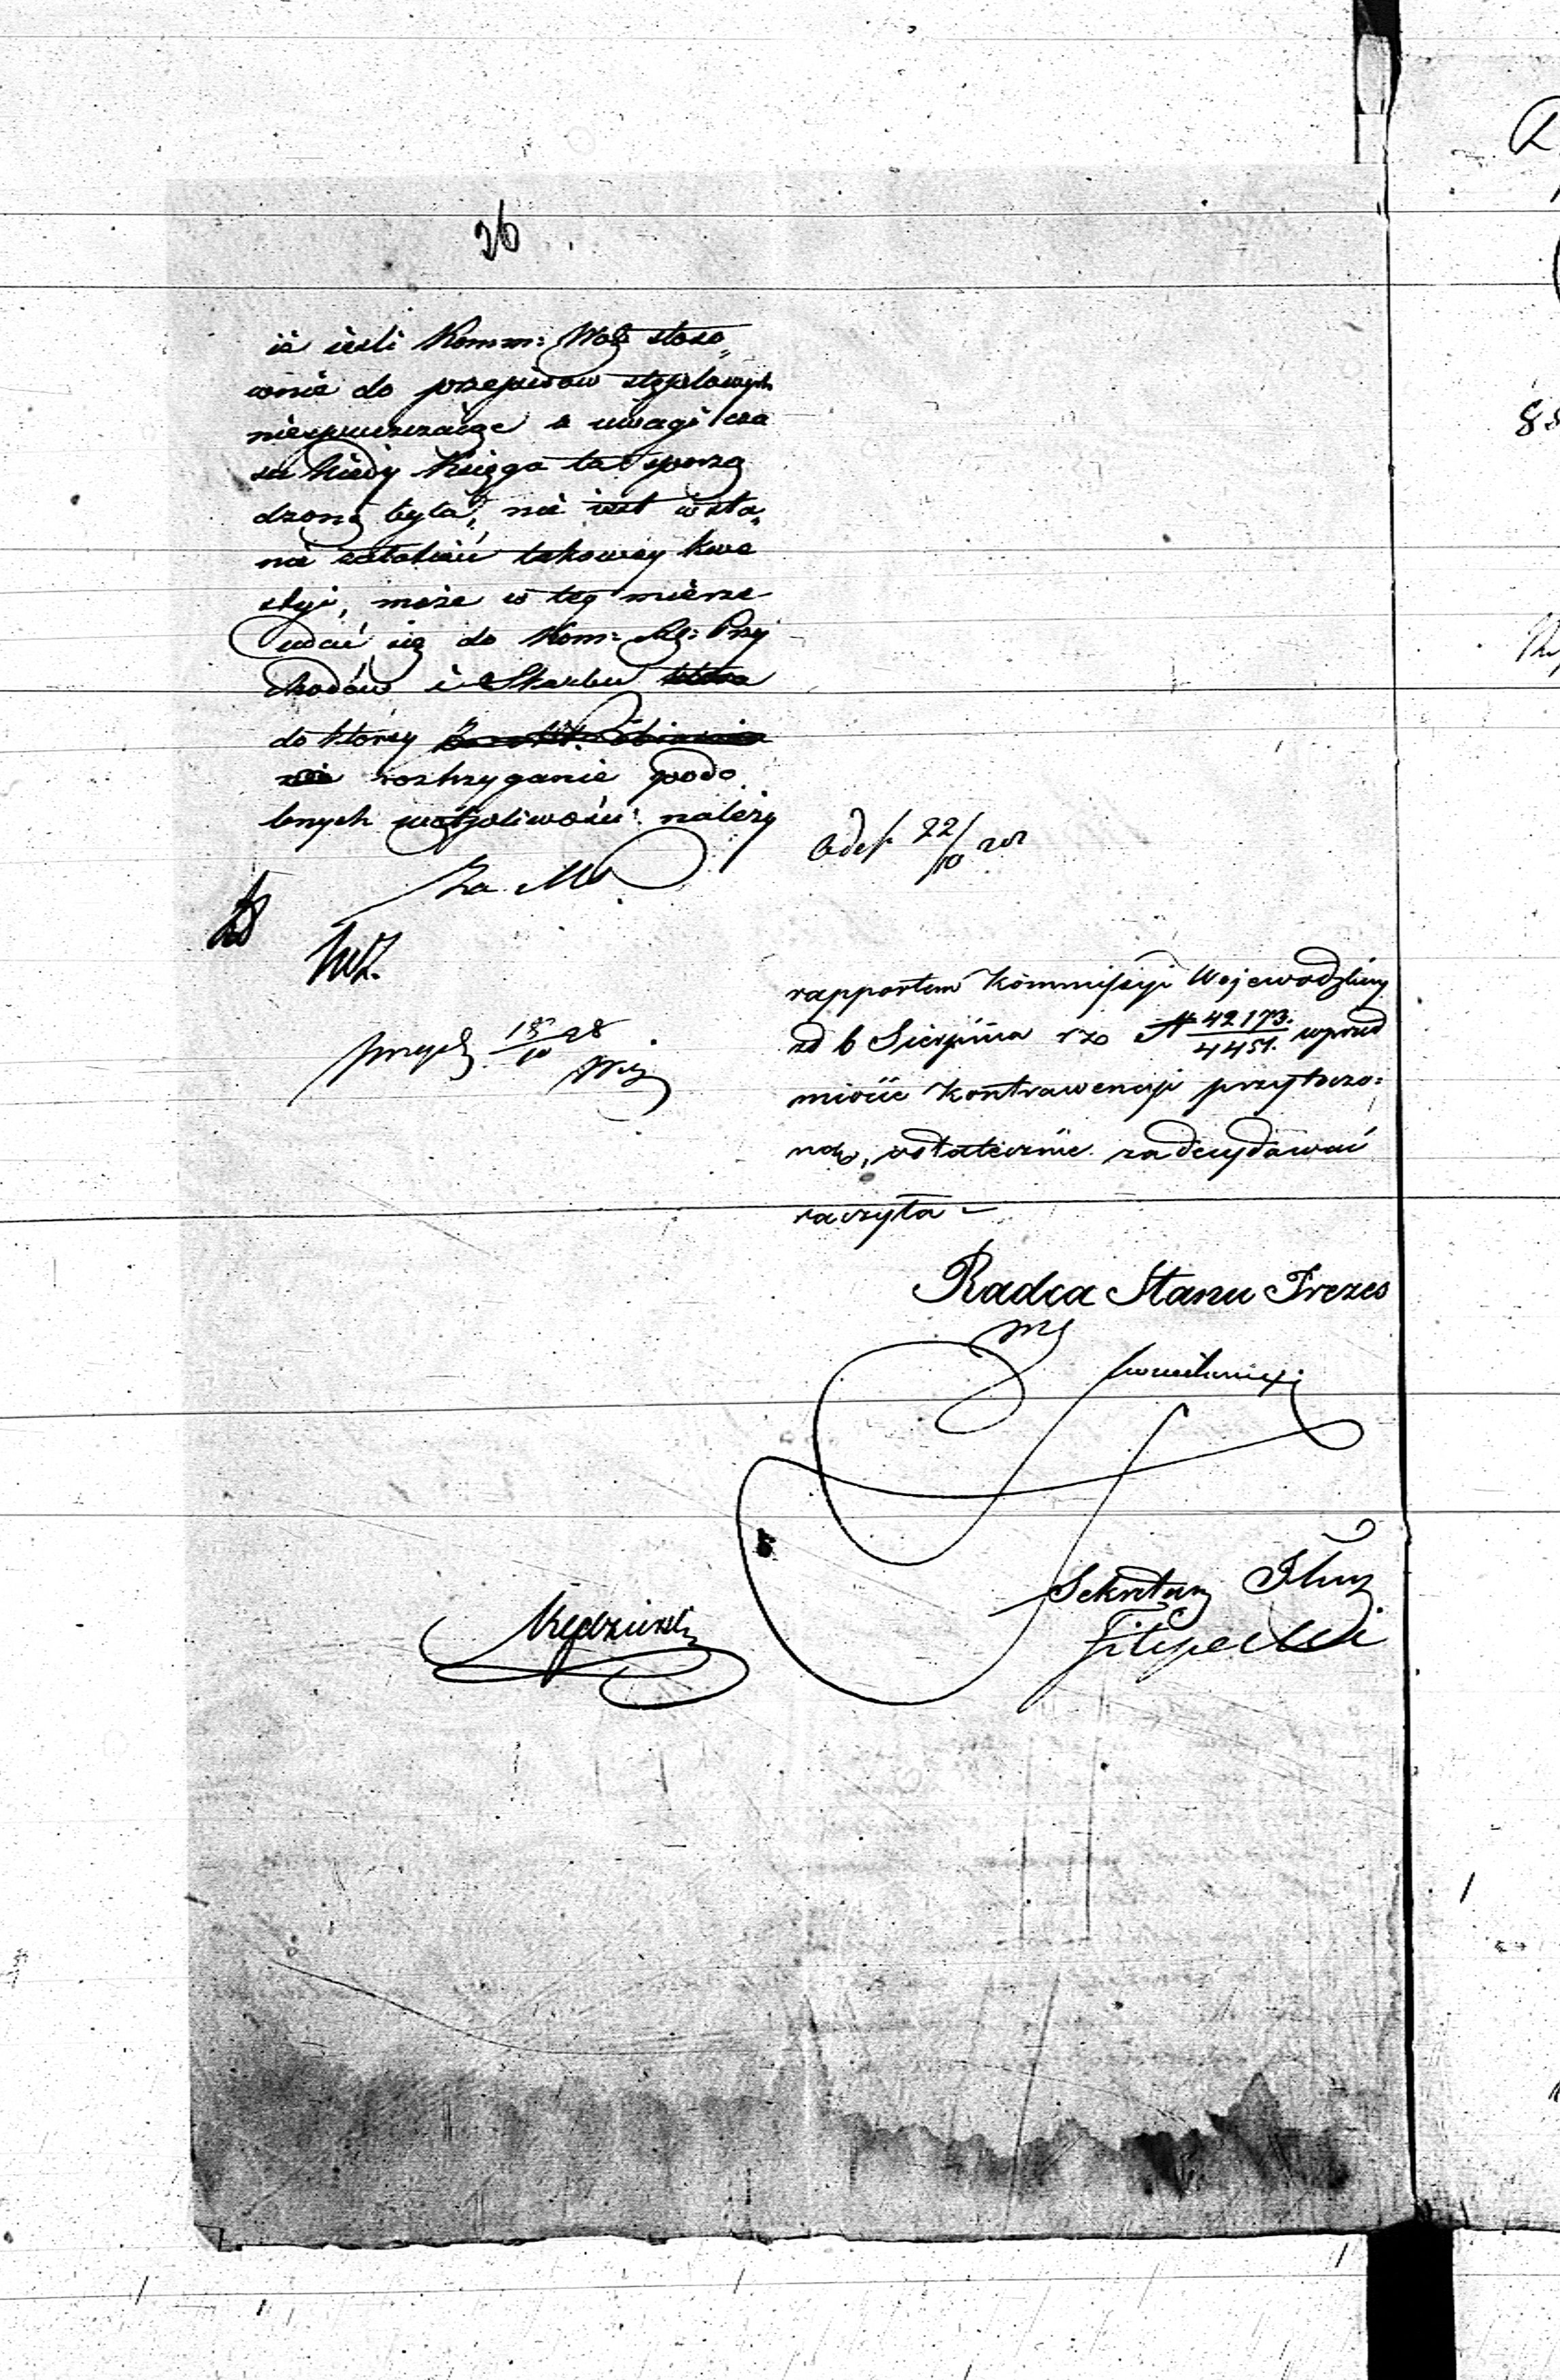 26
iż ieśli Komm: Wdz stoso„
wnie do przepisów stęplowych
niespuszczaiąc z uwagi cza
su kiedy Księga ta sporzą
dzoną była, nie iest w sta„
nie załatwić takowey kwe
styi, może w tey mierze
udać się do Kom: Rz: Przy
chodów i Skarbu
do którey
rozstrzyganie podo
bnych wątpliwości należy
Za M
exped. 22/10
przych. 18/10 28
rapportem Kommissyi Wojewodzkiey
zd 6 Sierpnia rz № 42173./4451. wprzed
miocie kontrawencyi przytoczo=
ną, ostatecznie zadecydować
raczyła –
Radca Stanu Prezes
Sekretarz Jlny
Filipecki